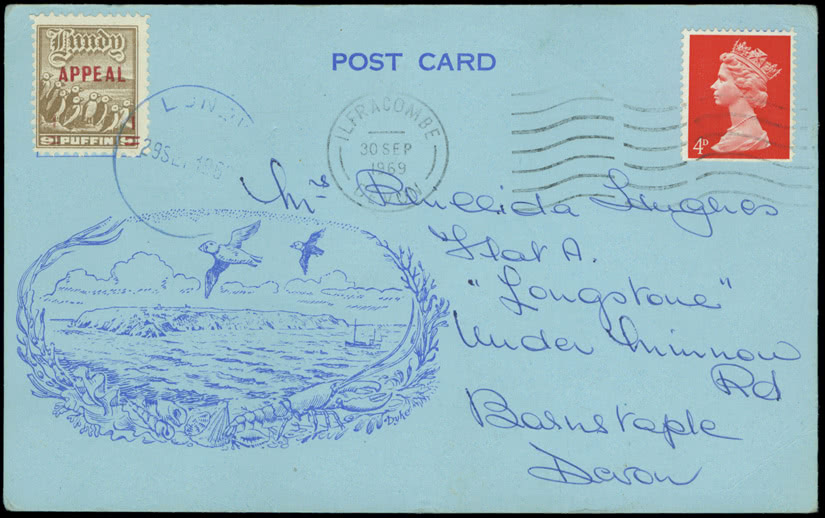 Lundy
APPEAL
9 PUFFIN 9
POST CARD
4D
LUNDY
29 SEP 196
ILFRACOMBE
30 SEP
1969
DEVON
Mrs Hughes
Flat A.
"Longstone"
Under Minnow
Rd
Barnstaple
Devon